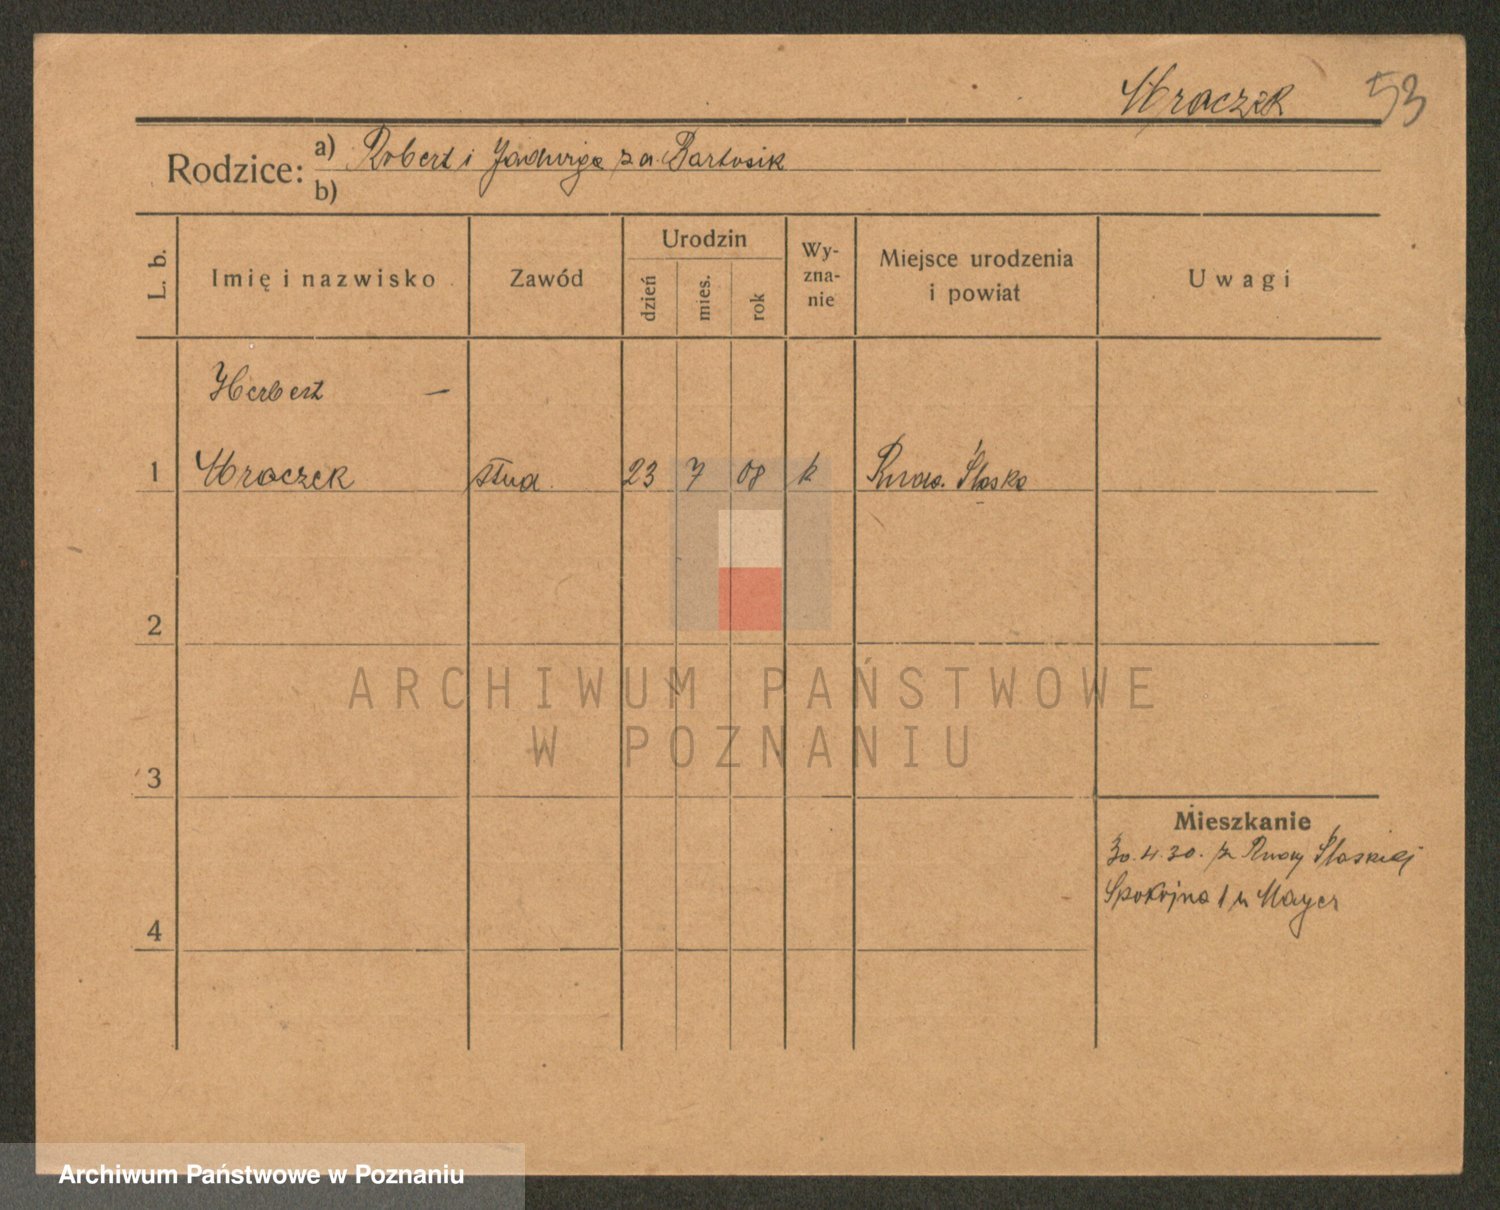 Mraczek 53
Rodzice: a) Robert i Jadwiga z d. Bartosik
b)
L. b.
Imię i nazwisko
Zawód
Urodzin
dzień
mies.
rok
Wy-
zna-
nie
Miejsce urodzenia
i powiat
Uwagi
Herbert —
1 Mraczek stud. 23 7 08 k Ruda Śląska
2
3
4
Mieszkanie
30.4.30. z Rudy Śląskiej
Spokojna 1 u Mayer
ARCHIWUM PAŃSTWOWE
W POZNANIU
Archiwum Państwowe w Poznaniu